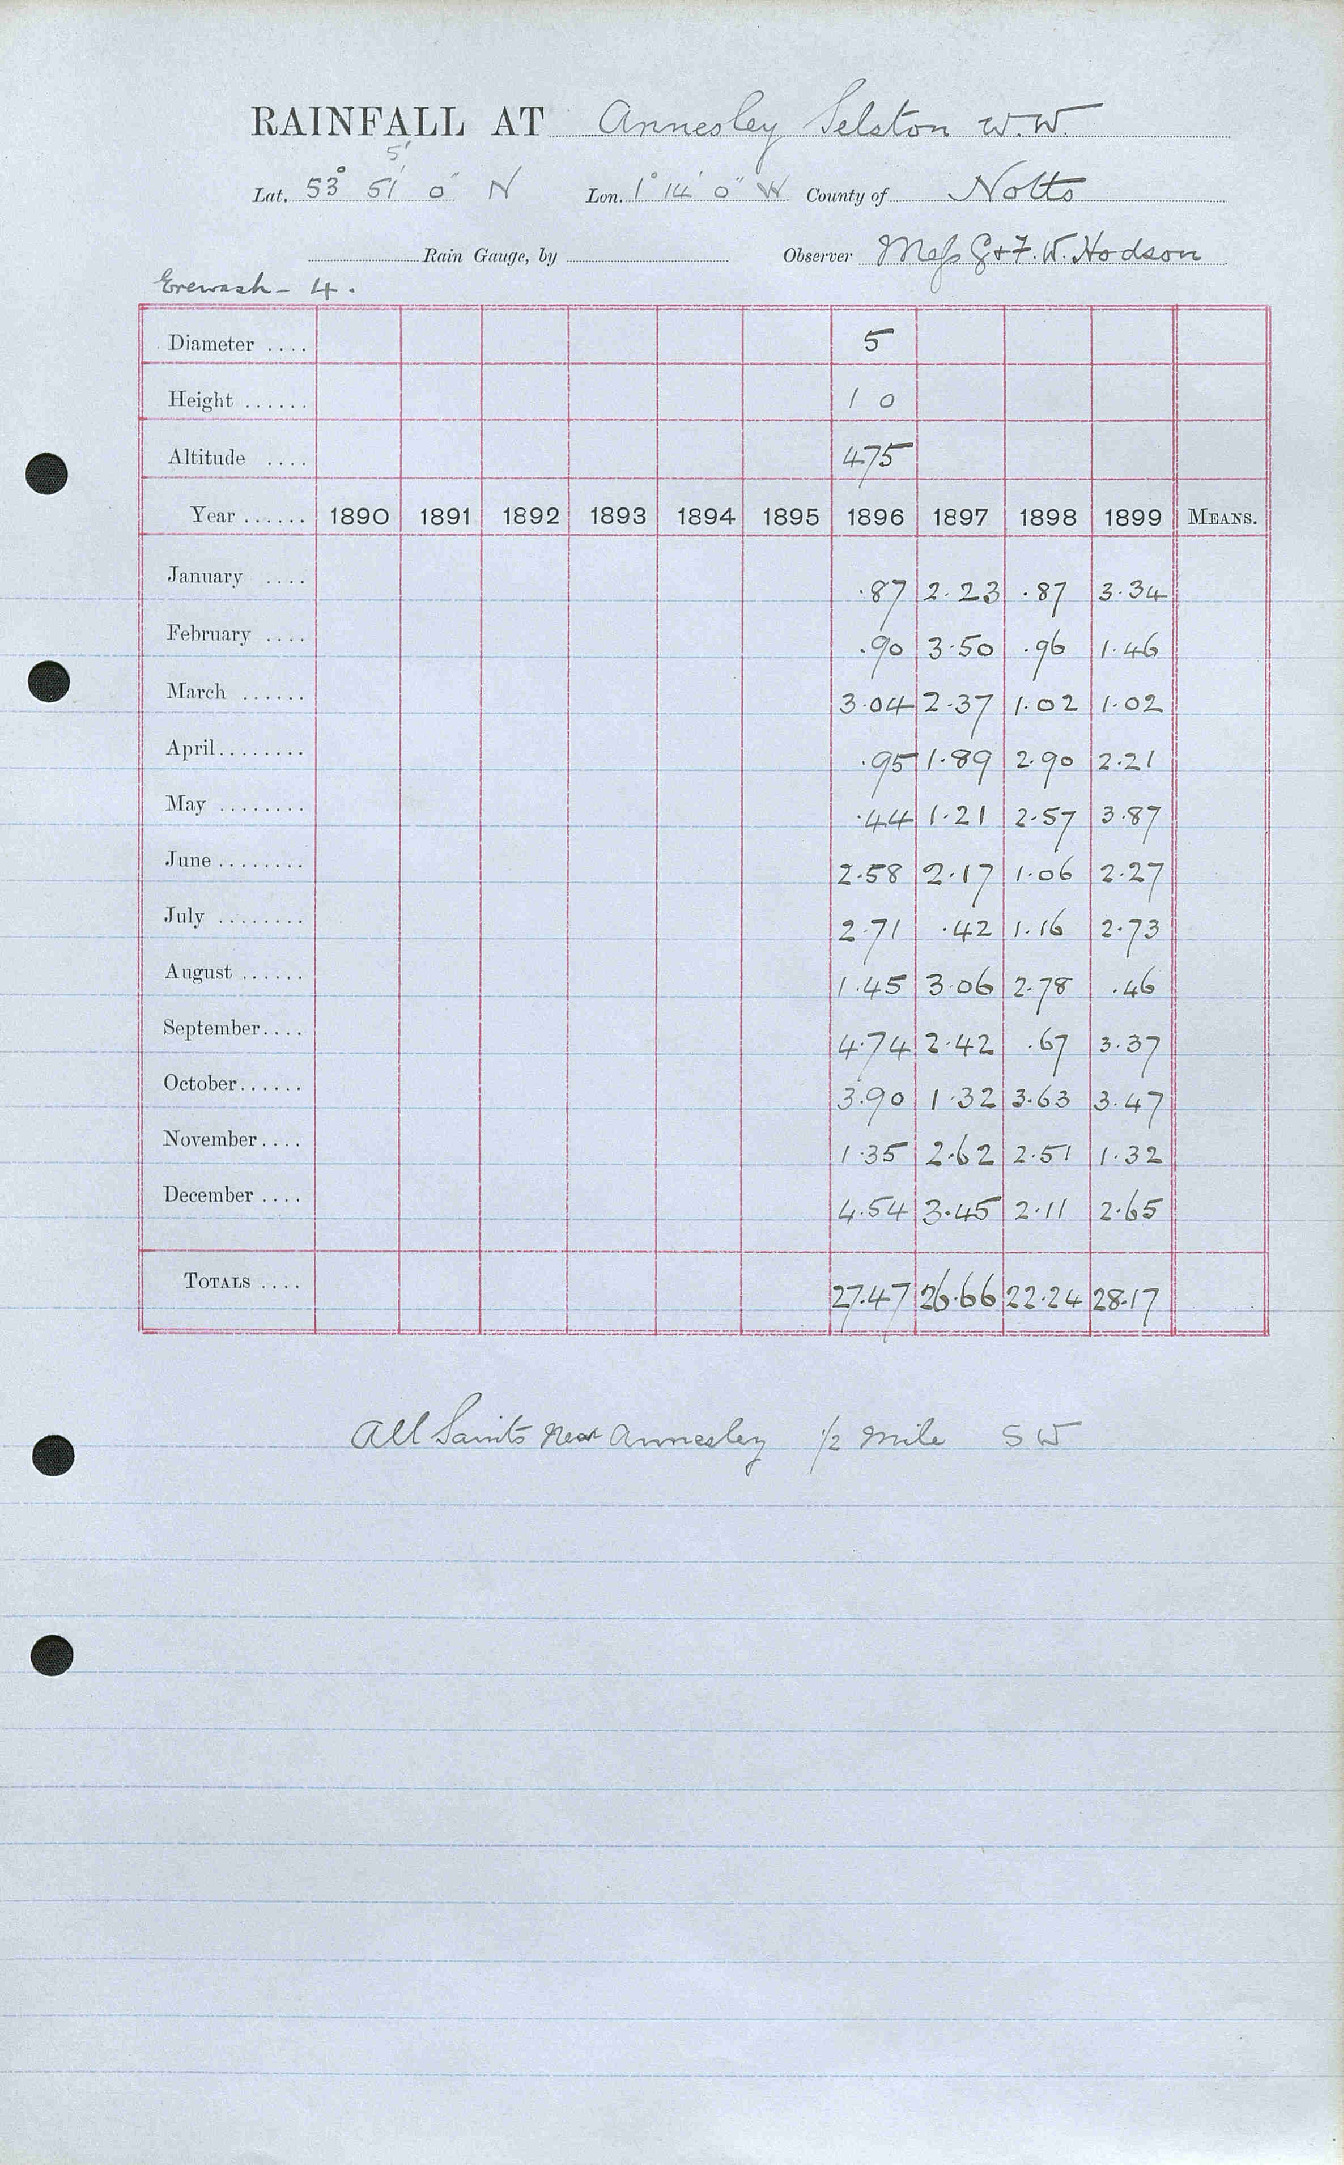 RAINFALL AT Annesley Selston W.W.
5'
Lat. 53° 51' 0" N Lon. 1° 14' 0" W County of Notts
Rain Gauge, by Observer Mess G + F. W. Hodson
Erewash - 4.
Diameter .... 5
Height ...... 1 0
Altitude .... 475
Year ...... 1890 1891 1892 1893 1894 1895 1896 1897 1898 1899 MEANS.
January .... .87 2.23 .87 3.34
February .... .90 3.50 .96 1.46
March ...... 3.04 2.37 1.02 1.02
April........ .95 1.89 2.90 2.21
May ........ .44 1.21 2.57 3.87
June ........ 2.58 2.17 1.06 2.27
July ........ 2.71 .42 1.16 2.73
August ...... 1.45 3.06 2.78 .46
September.... 4.74 2.42 .67 3.37
October...... 3.90 1.32 3.63 3.47
November.... 1.35 2.62 2.51 1.32
December .... 4.54 3.45 2.11 2.65
TOTALS .... 27.47 26.66 22.24 28.17
All Saints Near Annesley 1/2 Mile S W